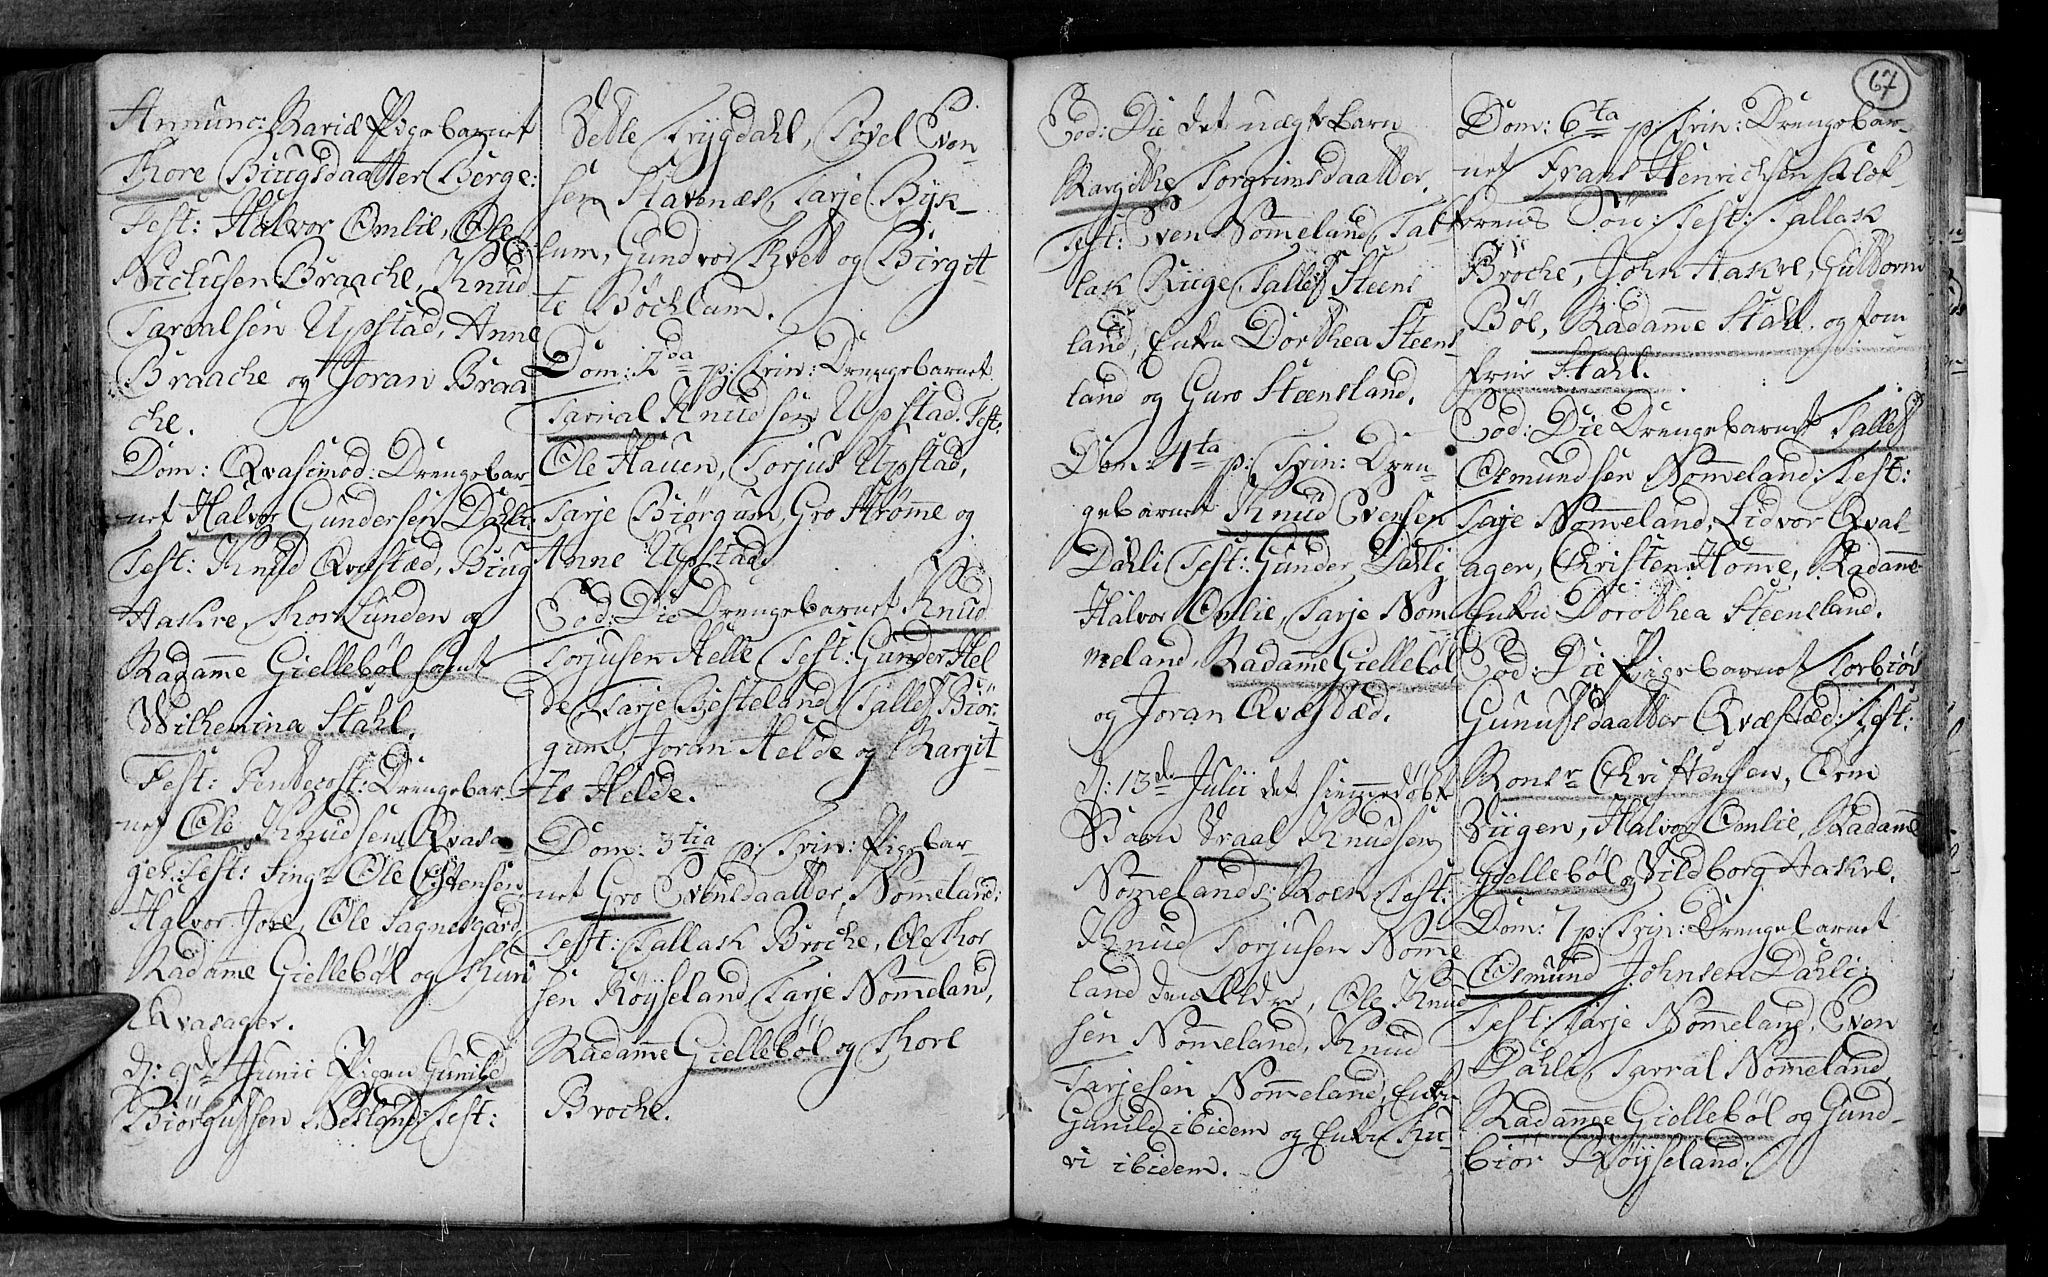 Annunc: Mariæ Pigebarnet
Thore Biugsdaatter Berge:
Test: Halvor Omlie, Ole
Niclusen Braache, Knud
Tarralsen Upstad, Anne
Braache og Joran Braa
che.
Dom: Qvasimod: Drengebar
net Halvor Gundersen Dahli
Test: Knud Qvæstæd, Biug
Haskre, Thor Lunden og
Madamme Giellebøl samt
Wilhemina Stahl.
Fest: Pentecost: Drengebar
net Ole Knudsen Qvasa
ger: Test: Ole Evensen
Halvor Jore, Ole Sagnesgard
Madamme Giellebøl og
Qvasager.
d: 9de Junii Pigen Gunild
Biørgufsen Nesland: Test:
Vetle Trygdahl, Tovel Even
sen Stavenæs, Tarje Byk
lum, Gundvor Tveit og Birgit
te Böchlum.
Dom: 2da p: Trin: Drengebarnet
Tarral Knudsen Upstad. Test:
Ole Hauen, Torjus Upstad,
Tarje Biørgum, Gro Strømme og
Anne Upstad.
Eod: Die Drengebarnet Knud
Torjusen Helle Test: Gunder Hel
de, Tarje Besteland Tallef Biör
gum, Joran Helde og Margit
te Helde.
Dom: 3tia p: Trin: Pigebar
net Gro Evensdaatter Nommeland:
Test: Tallask Broche, Ole Thor
sen Röyseland, Tarje Nommeland,
Madamme Giellebøl og Thore
Broche.
67
Eod: Die det uægte barn
Margithe Torgrimsdaatter.
Test: Even Nommeland, Tal
lak Riige, Tallef Steens
land, Enke Dorthea Steens
land og Guro Steensland.
Dom: 4ta p: Trin: Dren
gebarnet Knud Evensen
Dahli Test: Gunder Dahli
Halvor Omlie, Tarje Nom
meland, Madamme Giellebøl
og Joran Qvæstæd.
d: 13de Julii det hiemmedøbt
Barn Draal Knudsen
Nommelands-Moen: Test:
Knud Torjusen Nomme
land den Ælder, Ole Knud
sen Nommeland, Knud
Tarjesen Nommeland, Enke
Gunild ibidem og Enke
ibidem.
Dom: 6ta p: Trin: Drengebar
net Frans Henrichsen Klok
kerens Søn: Test: Tallask
Broche, John Haskre, Guttorm
Böe, Madamme Stahl og Jom
frue Stahl.
Eod: Die Drengebarnet Tallef
Osmundsen Nommeland: Test:
Tarje Nommeland, Lidvor Qvas
ager, Christen Homme, Madamme
Enke Dorothea Steensland.
Eod: Die Pigebarnet Torbiør
Gunufsdaatter Qvæstæd: Test:
Monsr Christensen, Orm
Riigen, Halvor Omlie, Madame
Giellebøl og Vildborg Haskre.
Dom: 7 p: Trin: Drengebarnet
Osmund Johnsen Dahli:
Test: Tarje Nommeland, Even
Dahli, Tarral Nommeland
Madamme Giellebøl og Gund
biør Röyseland.